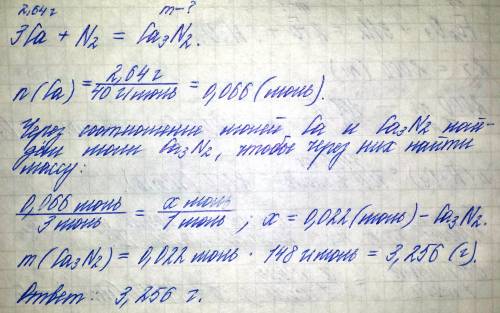 2,64 г m-?
3Ca + N2 = Ca3N2.
n(Ca) = 2,64 г / 40 г/моль = 0,066 (моль).
Через соотношение молей Ca и Ca3N2 най-
дём моли Ca3N2, чтобы через них найти
массу:
0,066 моль / 3 моль = x моль / 1 моль ; x = 0,022 (моль) - Ca3N2.
m(Ca3N2) = 0,022 моль · 148 г/моль = 3,256 (г).
Ответ: 3,256 г.